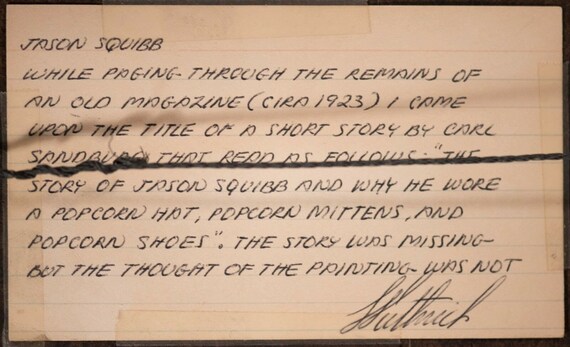 JASON SQUIBB
WHILE PAGING THROUGH THE REMAINS OF
AN OLD MAGAZINE (CIRA 1923) I CAME
UPON THE TITLE OF A SHORT STORY BY CARL
SANDBURG THAT READ AS FOLLOWS: "THE
STORY OF JASON SQUIBB AND WHY HE WORE
A POPCORN HAT, POPCORN MITTENS, AND
POPCORN SHOES". THE STORY WAS MISSING-
BUT THE THOUGHT OF THE PAINTING WAS NOT